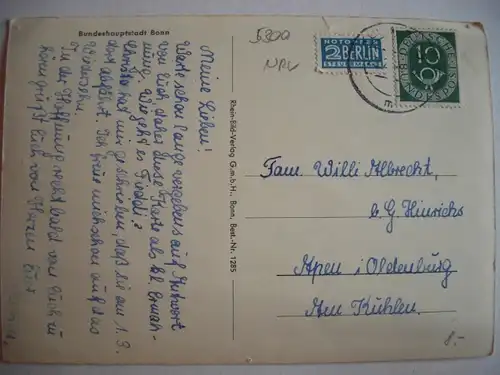 Bundeshauptstadt Bonn
Meine Lieben!
Warte schon lange vergebens auf Antwort
von Euch, daher diese Karte als kl. Ermah-
nung. Wie geht es
hat mir geschrieben, daß sie am 1. 3.
dort abfährt. Ich freue mich schon auf das
Wiedersehen
In der Hoffnung recht bald von Euch zu
hören grüßt Euch von Herzen
Rhein-Bild-Verlag G.m.b.H., Bonn, Best.-Nr. 1285
NOTOPFER
2 BERLIN
STEUERMARKE
DEUTSCHE BUNDESPOST
10
Fam. Willi Albrecht,
b. G. Hinrichs
Apen i. Oldenburg
Am Kühlen.
8.-